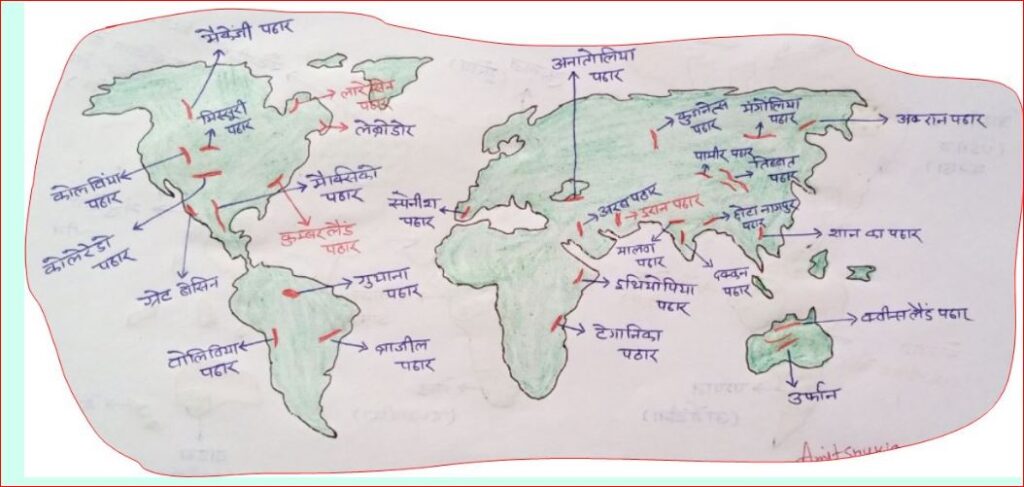 मैकेंजी पठार
अनातोलिया
पठार
लारेंसिन
पठार
मिस्सुरी
पठार
लेब्रोडोर
कुजनेत्स
पठार
मंगोलिया
पठार
अकरान पठार
पामीर पठार
तिब्बत
पठार
कोलंबिया
पठार
मैक्सिको
पठार
स्पेनीश
पठार
अरब पठार
ईरान पठार
छोटा नागपुर
पठार
शान का पठार
कुम्बरलैंड
पठार
कोलेरेडो
पठार
मालवा
पठार
दक्कन
पठार
ग्रेट बेसिन
गुयाना
पठार
इथियोपिया
पठार
क्वींसलैंड पठार
बोलिविया
पठार
ब्राजील
पठार
टेंगानिका
पठार
उर्फान